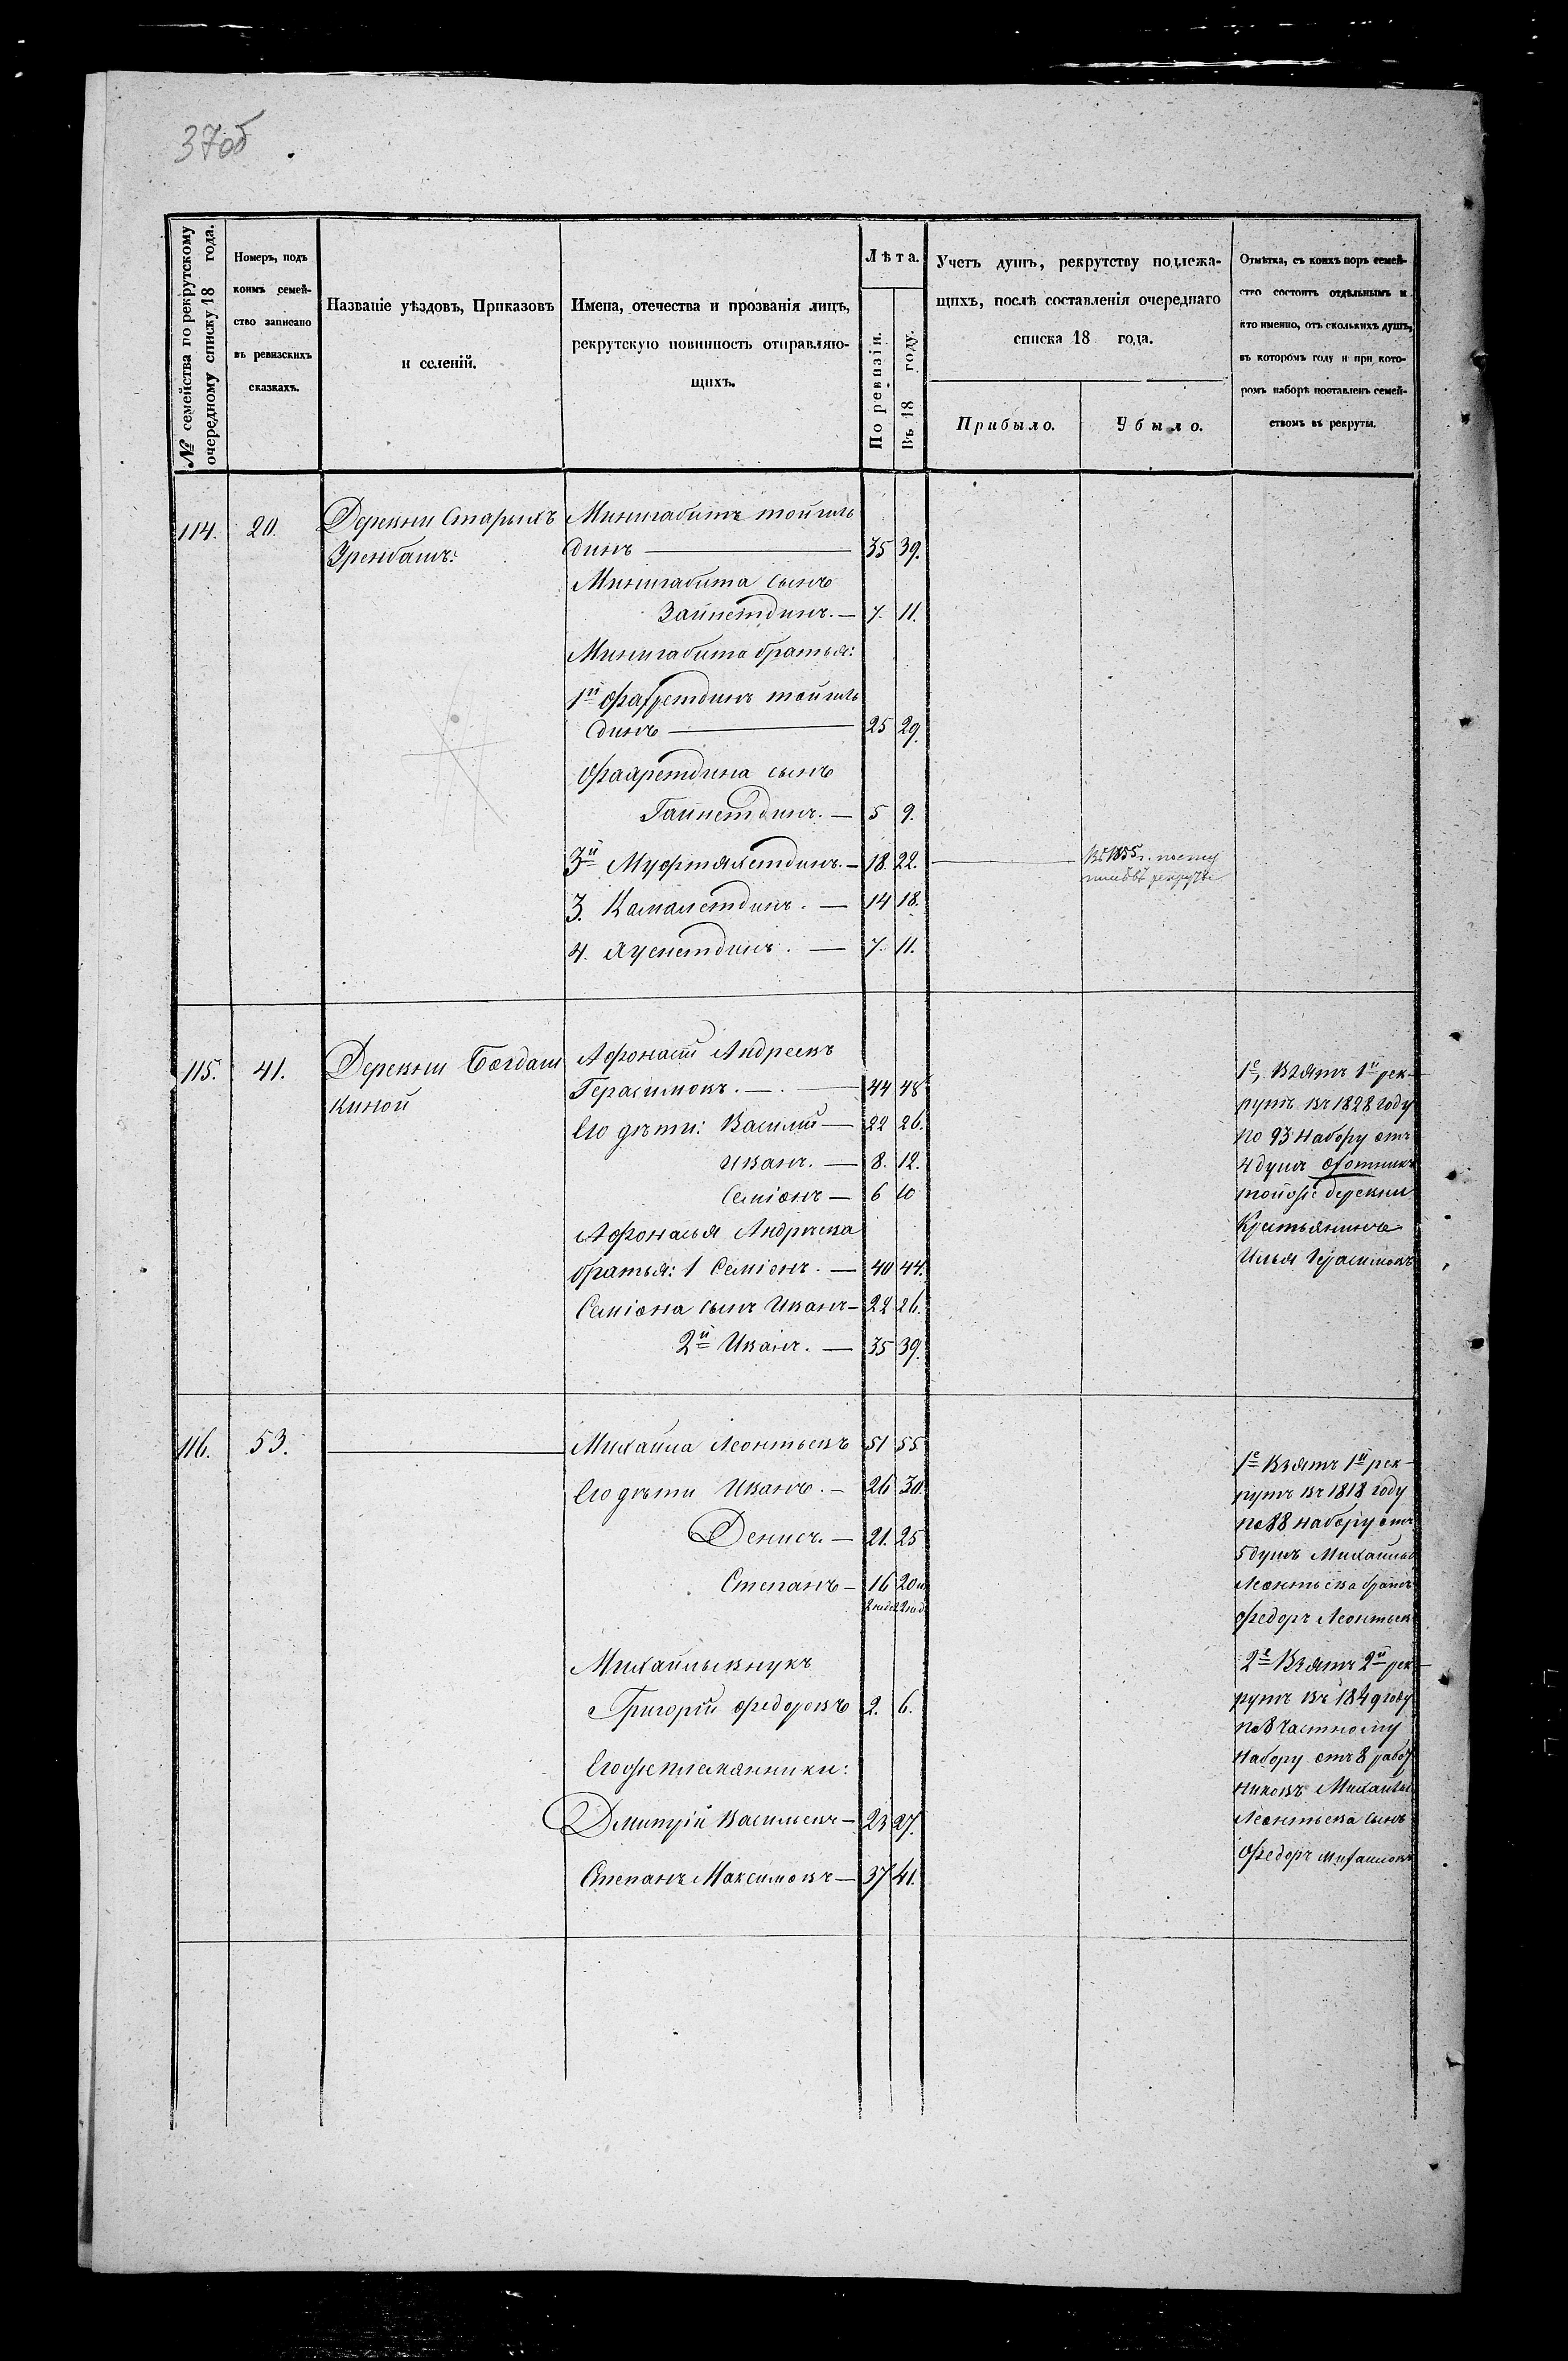 37об
№ семейства по рекрутскому
очередному списку 18 года.
Номеръ, подъ
коимъ семей-
ство записано
въ ревизскихъ
сказкахъ.
Названіе уѣздовъ, Приказовъ
и селеній.
Имена, отечества и прозванія лицъ,
рекрутскую повинность отправляю-
щихъ.
Лѣта.
По ревизіи.
Въ 18 году.
Учетъ душъ, рекрутству подлежа-
щихъ, послѣ составленія очереднаго
списка 18 года.
Прибыло.
Убыло.
Отмѣтка, съ коихъ поръ семей-
ство состоитъ отдѣльнымъ и
кто именно, отъ сколькихъ душъ,
въ которомъ году и при кото-
ромъ наборѣ поставленъ семей-
ствомъ въ рекруты.
114. 20. Деревни Старыхъ Минигабитъ тойгиль
Зренбашъ: динъ — 35 39.
Минигабита сынъ
Зайнетдинъ. — 7. 11.
Минигабита братья:
1й тойгиль
динъ — 25 29.
сынъ
Гайнетдинъ. — 5 9.
3й — 18. 22. — Въ 1855 г. посту
пилъ въ рекруты
3. Камалетдинъ. — 14 18.
4. — 7. 11.
115. 41. Деревни Богдаш Афонасій Андреевъ
киной Герасимовъ. — 44 48
Его дѣти: Василій — 22 26.
Иванъ. — 8. 12.
Семіонъ — 6 10
Афонасья Андрѣева
братья: 1 Семіонъ. — 40 44.
Семіона сынъ Иванъ — 22 26.
2й Иванъ. — 35 39.
1е, Взятъ 1й рек-
рутъ въ 1828 году
по 93 набору отъ
4 душъ охотникъ
тойже деревни
Крестьянинъ
Илья Герасимовъ
116. 53. — Михайла Леонтьевъ 51 55
Его дѣти Иванъ. — 26 30.
Денисъ. — 21. 25
Степанъ — 16 20
Михайлы внукъ
Григорій Федоровъ 2. 6.
Егоже племянники:
Дмитрій Васильевъ — 23 27.
Степанъ Максимовъ — 37 41.
1е Взятъ 1й рек-
рутъ въ 1818 году
по 88 набору отъ
5 душъ Михайлы
Леонтьева братъ
Федоръ Леонтьев
2е Взятъ 2й рек-
рутъ въ 1849 году
по 8 частному
набору отъ 8 работ
никовъ Михайлы
Леонтьева сынъ
Федоръ Михайловъ